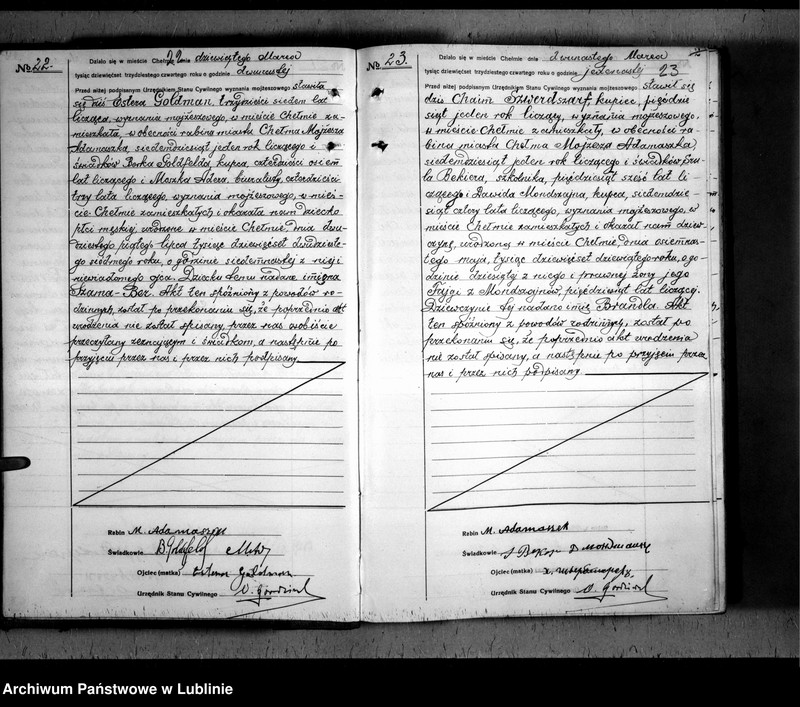 No 22.
22
Działo się w mieście Chełmie dnia dziewiątego Marca
tysiąc dziewięćset trzydziestego czwartego roku o godzinie dwunastej
Przed niżej podpisanym Urzędnikiem Stanu Cywilnego wyznania mojżeszowego, stawiła
się dziś Estera Goldman, trzydzieści siedem lat
licząca, wyznania mojżeszowego, w mieście Chełmie za-
mieszkała, w obecności rabina miasta Chełma Mojżesza
Adamaszka, siedemdziesiąt jeden rok liczącego i
świadków Berka Goldfelda kupca, czterdzieści osiem
lat liczącego i Moszka Adera, biuralisty czterdzieści
trzy lata liczącego, wyznania mojżeszowego, w mieś-
cie Chełmie zamieszkałych i okazała nam dziecko
płci męskiej urodzone w mieście Chełmie, dnia dwu-
dziestego piątego lipca tysiąc dziewięćset dwudzieste-
go siódmego roku, o godzinie siedemnastej z niej i
niewiadomego ojca. Dziecku temu nadane imiona
Szama-Ber. Akt ten spóźniony z powodów ro-
dzinnych, został po przekonaniu się, że poprzednio akt
urodzenia nie został spisany, przez nas osobiście
przeczytany zeznającym i świadkom, a następnie po
przyjęciu przez nas i przez nich podpisany
Rabin M. Adamaszek
Świadkowie B. Goldfeld
Ojciec (matka) Estera Goldman
Urzędnik Stanu Cywilnego
No 23.
23
Działo się w mieście Chełmie dnia dwunastego Marca
tysiąc dziewięćset trzydziestego czwartego roku o godzinie jedenastej
Przed niżej podpisanym Urzędnikiem Stanu Cywilnego wyznania mojżeszowego stawił się
dziś Chaim Szwerdszarf, kupiec, pięćdzie-
siąt jeden rok liczący, wyznania mojżeszowego,
w mieście Chełmie zamieszkały, w obecności ra-
bina miasta Chełma Mojżesza Adamaszka,
siedemdziesiąt jeden rok liczącego i świadków
Bekiera, szkolnika, pięćdziesiąt sześć lat li-
czącego i Dawida Mondrzajna, kupca, siedemdzie-
siąt cztery lata liczącego, wyznania mojżeszowego, w
mieście Chełmie zamieszkałych i okazał nam dziew-
czynę, urodzoną w mieście Chełmie, dnia osiemnas-
tego maja, tysiąc dziewięćset dziewiątego roku, o go-
dzinie dziesiątej z niego i prawnej żony jego
Fajgi z Mondrzajnów, pięćdziesiąt lat liczącej.
Dziewczynie tej nadano imię Brandla. Akt
ten spóźniony z powodów rodzinnych, został po
przekonaniu się, że poprzednio akt urodzenia
nie został spisany, a następnie po przyjęciu przez
nas i przez nich podpisany
Rabin M. Adamaszek
Świadkowie
Ojciec (matka)
Urzędnik Stanu Cywilnego
Archiwum Państwowe w Lublinie